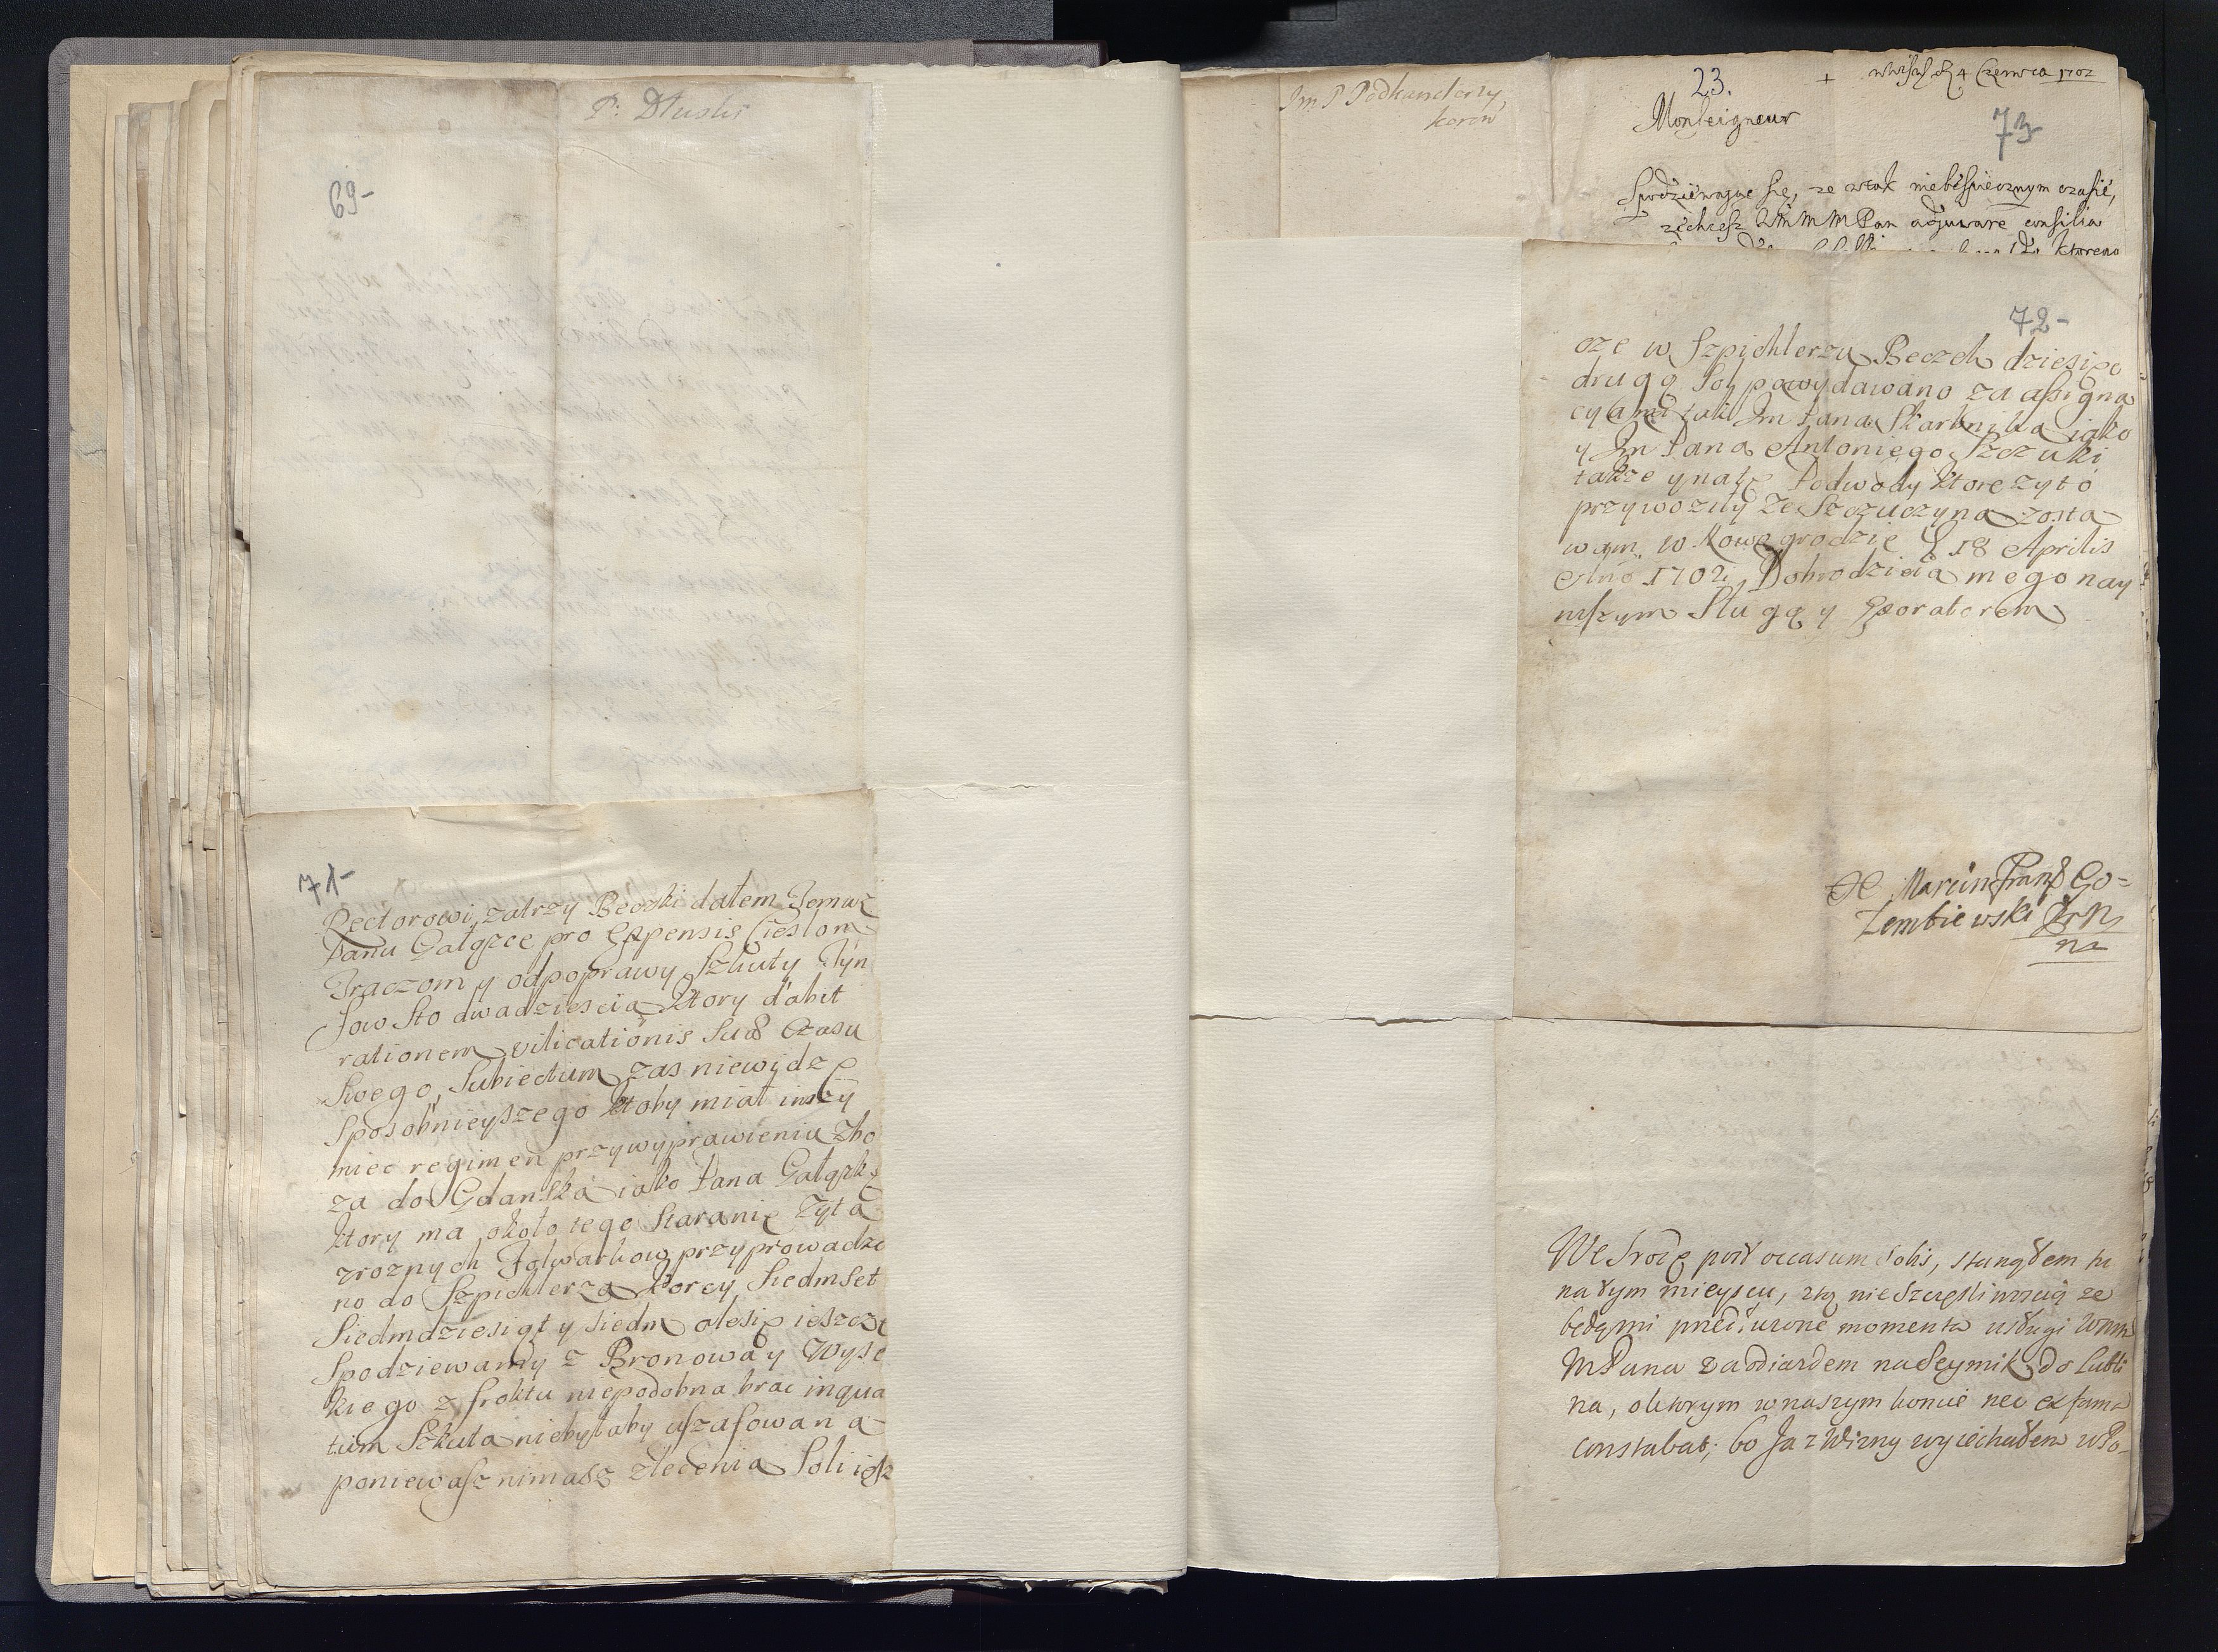 P: Dłuski
69-
71-
Rectorowi, zatrzy Beczki dałem Jemuz
Panu Gałązce pro Expensis Cieslom
Traczom y odpoprawy Szkuty Tyn
fow Sto dwadziescia ktory dabit
rationem vilicationis suæ Czasu
Swego, Subiectum zas niewidzę
Sposobnieyszego ktoby miał inszy
miec regimen przywyprawieniu zbo
za do Gdanska iako Pana Gałązkę
ktory ma około tego staranie Zyta
zroznych Folwarkow przyprowadzo
no do Szpichlerza Korcy Siedmset
Siedmdziesiąt y siedm alesię ieszcze
Spodziewamy z Bronowa y Wyso
kiego z froktu niepodobna brac inqua
tum Szkuta niebyłaby uszafowana
poniewasz nimasz zlecenia Soli iesz
Jm P Podkanclerzy
koron
23.
+ 4 Czerwca 1702
Monseigneur
73
Spodziewaiąc się, ze wtak niebespiecznym czasie,
zechcesz WMMMPan adjuware consilia
ktorego
72-
cze w Szpichlerzu Beczek dziesięc
drugą Sol powydawano za assigna
cyiami tak Jm Pana Skarbnika iako
y Jm Pana Antoniego Szczuki
takze ynatę Podwody ktore zyto
przywoziły ze Szczuczyna zosta
wam w Nowegrodzie d 18 Aprilis
Anno 1702 Dobrodzieia mego nay
nisszym Sługą y Exoratorem
X Marcin Franc Go=
łembiewski
We srodę post occasum solis, stanąłem tu
natym mieyscu, ztą nieszczęsliwoscią ze
momenta usługi Wmm
MPana zaodiazdem nasseymik do Lubli
na, oktorym wnaszym koncie nec ex fama
constabat; bo Ja z Wizny wyiechałem wPo-